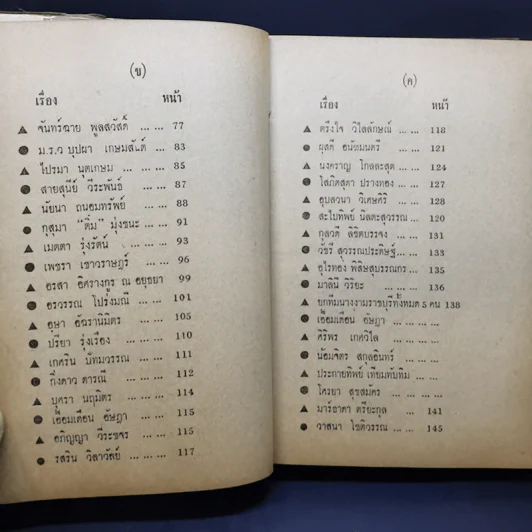 (ข)
เรื่อง หน้า
▲ จันทร์ฉาย พูลสวัสดิ์ ... ... 77
● ม.ร.ว บุปผา เกษมสันต์ ... 83
▲ ไปรมา นุตเกษม ... ... 85
● สายสุนีย์ วีระพันธ์ ... 87
▲ นัยนา ถนอมทรัพย์ ... 88
● กุสุมา "ติ๋ม" มุ่งชนะ ... 91
▲ เมตตา รุ่งรัตน์ ... ... 93
● เพชรา เชาวราษฎร์ ... 96
▲ อรสา อิศรางกูร ณ อยุธยา 99
● อรวรรณ โปร่งมณี ... ... 101
▲ อุษา อัจฉรานิมิตร ... ... 105
● ปรียา รุ่งเรือง ... ... 110
▲ เกศริน ปัทมวรรณ ... ... 111
● กิ่งดาว ดารณี ... ... 112
▲ บุศรา นฤมิตร ... ... 114
● เอื้อมเดือน อัษฎา ... ... 115
▲ อภิญญา วีระขจร ... ... 115
● รสริน วิลาวัลย์ ... ... ... 117
(ค)
เรื่อง หน้า
▲ ตรึงใจ วิไลลักษณ์ ... ... 118
● ผุสดี อนัฆมนตรี ... 121
▲ นงคราญ โกลละสุต ... ... 124
● โสภิตสุดา ปรางทอง ... 127
▲ อุบลวนา วิเศษศิริ ... ... 128
● สะไบทิพย์ นิลตะสุวรรณ ... 120
▲ กุลวดี ลิขิตบรรจง ... ... 131
● วัชรี สุวรรณประดิษฐ์ ... ... 133
▲ อุไรทอง พิสิษสุบรรณกร ... 135
● มาลินี วิริยะ ... ... ... 136
▲ ยกทีมนางงามราชบุรีทั้งหมด 5 คน 138
● เอื้อมเดือน อัษฎา ... ...
▲ ศิริพร เกศวิไล ... ...
● น้อมจิตร สกุลอินทร์ ...
▲ ประกายทิพย์ เทียมทับทิม ...
● โศรยา สุขสมัคร ... ...
▲ มาร์ธาดา ตรียะกุล ... 141
● วาสนา โชติวรรณ ... ... 145